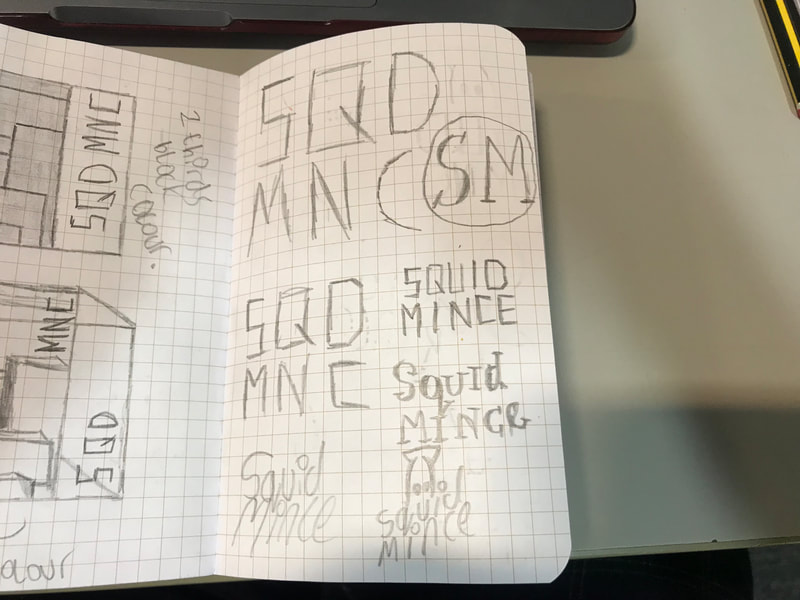 SQD MNC
2 thirds
block
colour.
MNC
SQD
colour
SQD
MNC
SM
SQD
MNC
SQUID
MINCE
Squid
MINCE
Squid
Mince
squid
mince